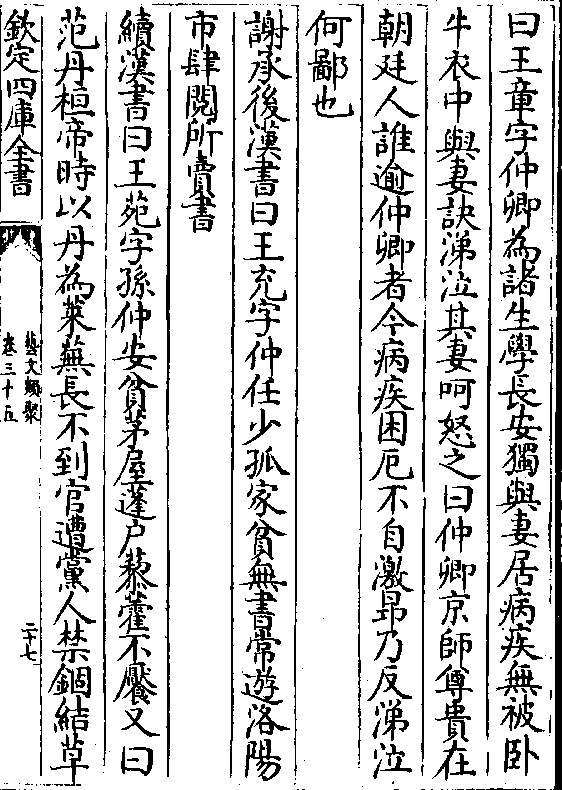 曰王章字仲卿為諸生學長安獨與妻居病疾無被卧
牛衣中與妻訣涕泣其妻呵怒之曰仲卿京師尊貴在
朝廷人誰逾仲卿者今病疾困厄不自激昻乃反涕泣
何鄙也
謝承後漢書曰王充字仲任少孤家貧無書常遊洛陽
市肆閲所賣書
續漢書曰王苑字孫仲安貧茅屋蓬户藜藿不饜又曰
范丹桓帝時以丹為萊蕪長不到官遭黨人禁錮結草
欽定四庫全書
藝文類聚
卷三十五
二十七